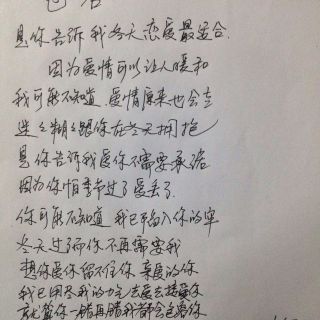 包容
是你告诉我冬天恋爱最适合
因为爱情可以让人暖和
我可能不知道 爱情原来也会走
迷迷糊糊跟你在冬天拥抱
是你告诉我爱你不需要承诺
因为你怕季节过了爱丢了
你可能不知道 我已陷入你的牢
冬天过了而你不再需要我
想你爱你留不住你 亲爱的你
我已用尽我的力气去爱去接受你
就算你一错再错我都会包容你